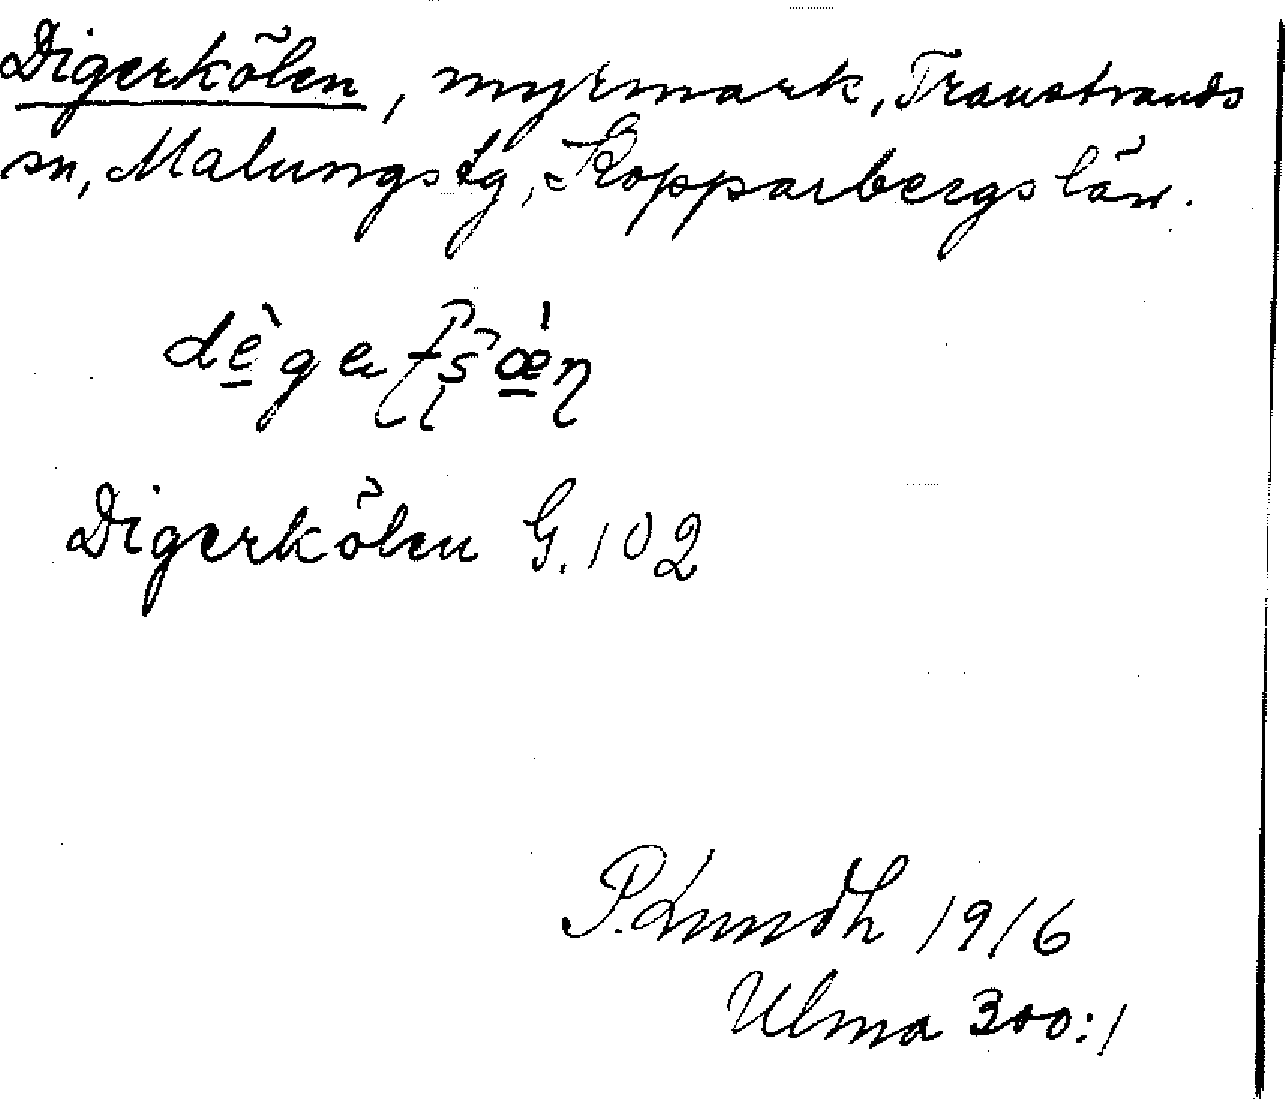 Digerkölen, myrmark, Transtrands
sn, Malungs tg, Kopparbergs län.
Digerkölen G. 102
P. Lundh 1916
Ulma 300:1